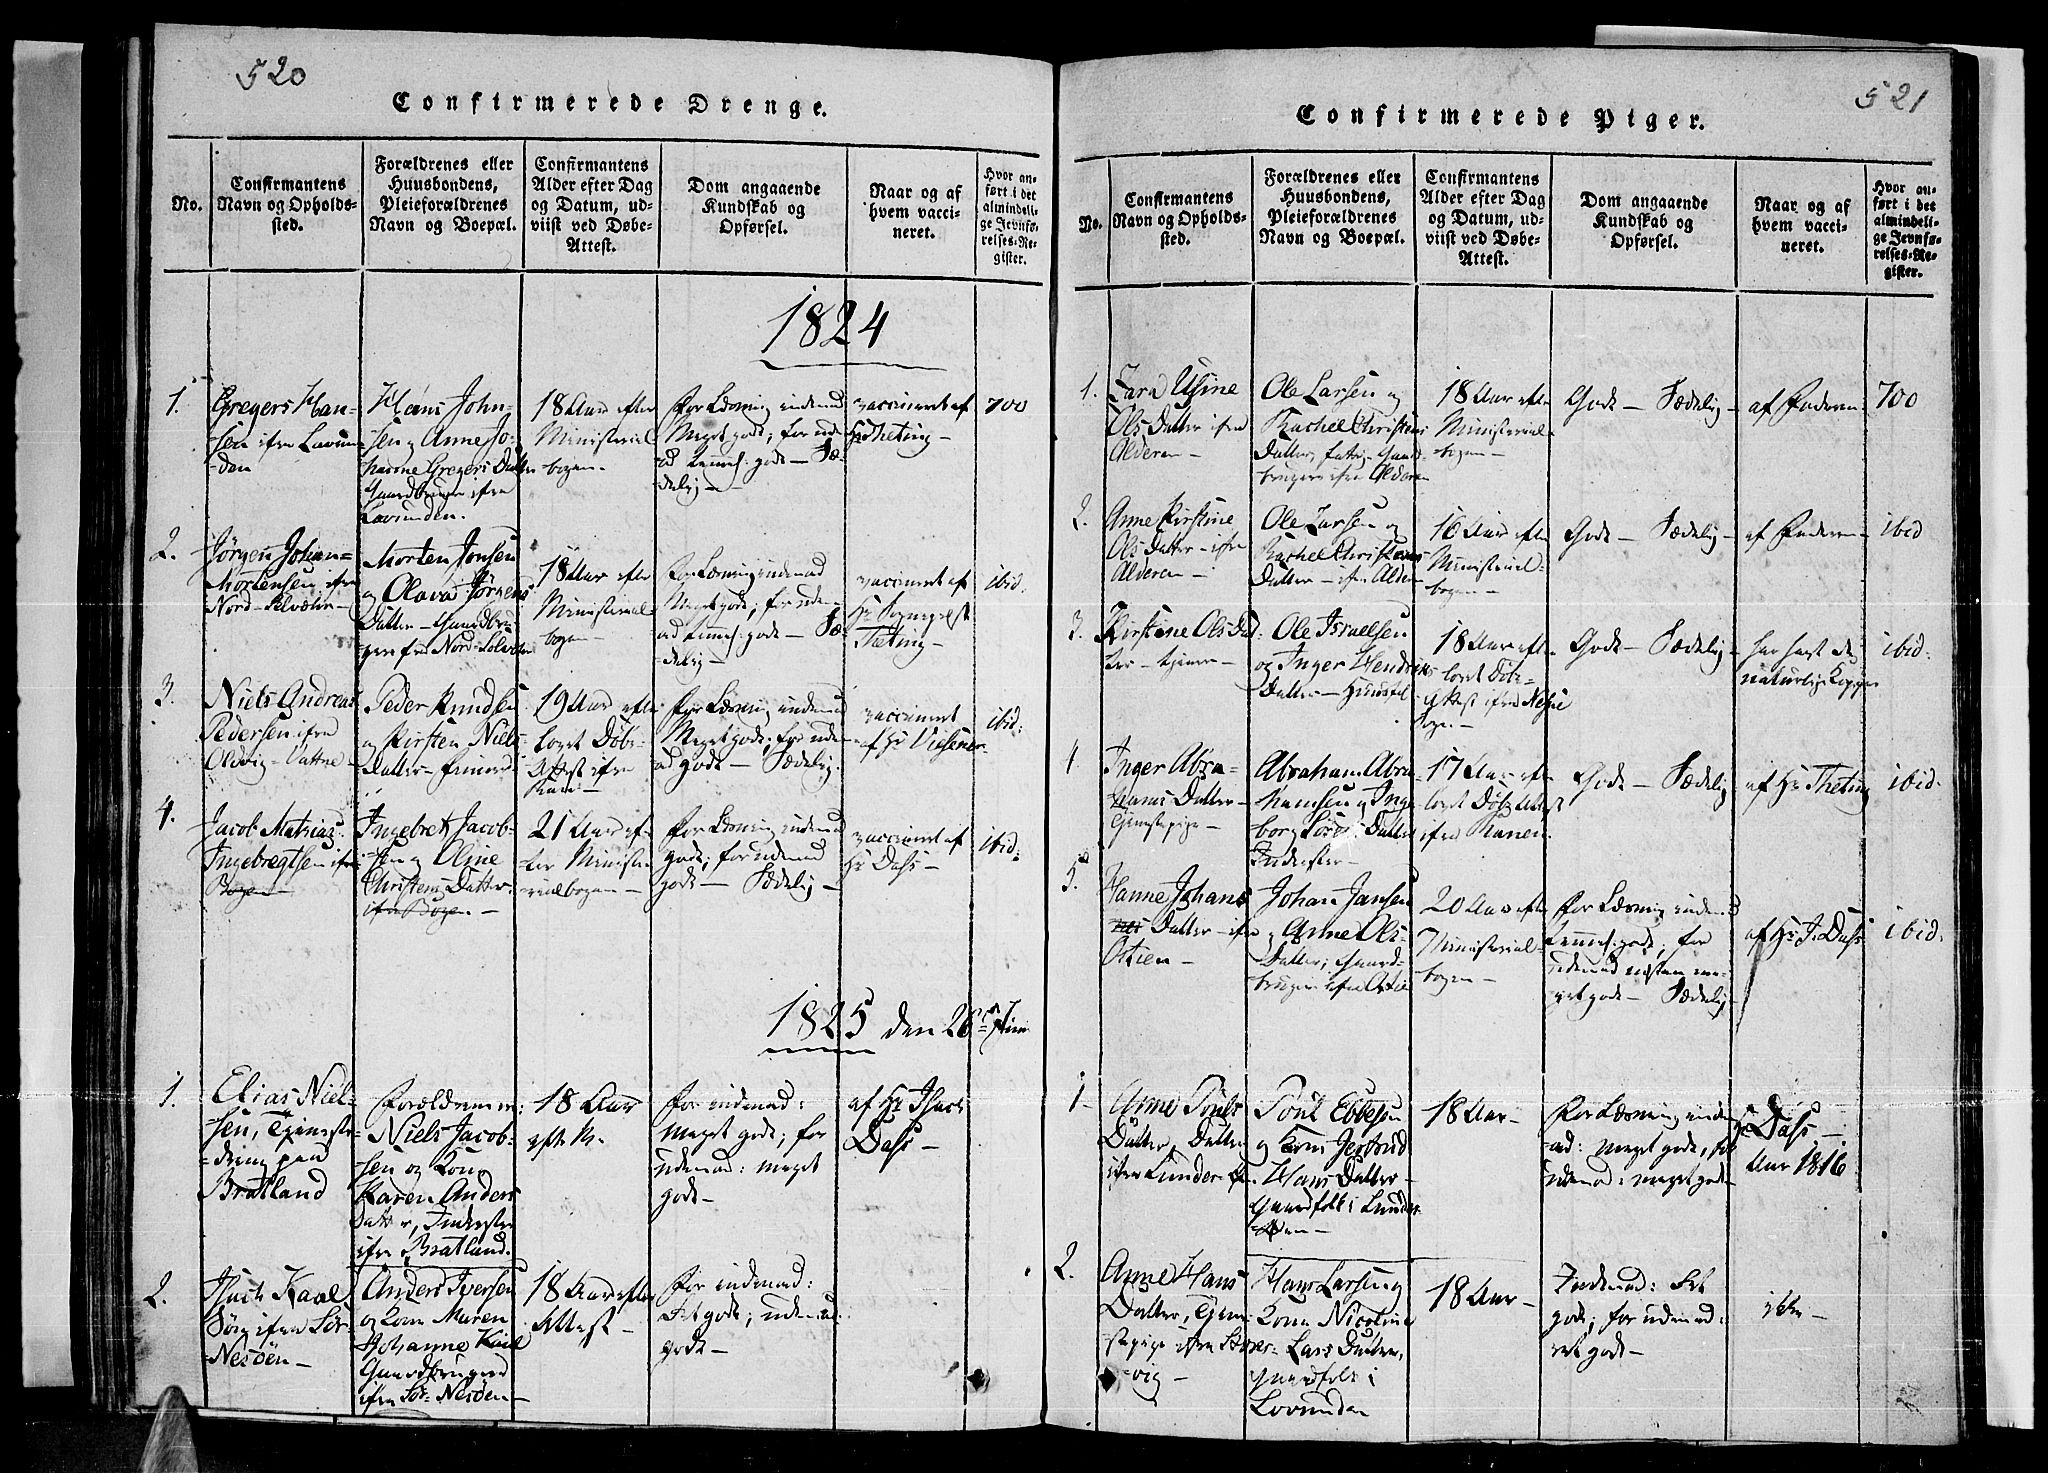 520
Confirmerede Drenge.
No.
Confirmantens
Navn og Opholds-
sted.
Forældrenes eller
Huusbondens,
Pleieforældrenes
Navn og Boepæl.
Confirmantens
Alder efter Dag
og Datum, ud-
viist ved Døbe-
Attest.
Dom angaaende
Kundskab og
Opførsel.
Naar og af
hvem vacci-
neret.
Hvor an-
ført i det
almindeli-
ge Jevnfø-
relses-Re-
gister.
1824
1.
Gregers Han-
sen ifra Lovun-
den
Hans John-
sen og Anne Jo-
hanne Gregers Datter
Gaardbruger ifra
Lovunden.
18 Aar efter
Ministerial
bogen-
for Læsning indenad
Meget godt; for uden
ad temmel: godt - Sæ-
delig -
vaccineret af
Hr Theting -
700
2.
Jörgen Johan-
Mortensen ifra
Nord-Solvær -
Morten Jonsen
og Olava Jörgens
Datter - Gaardbru-
ger fra Nord-Solvær
18 Aar efter
Ministerial-
bogen -
for Læsning indenad
Meget godt; for uden-
ad temmel: godt - Sæ-
delig -
vaccineret af
Hr
Theting -
ibid:
3.
Niels Andreas
Pedersen ifra
Aldvig-Vattne -
Peder Knudsen
og Kirsten Niels-
Datter -
19 Aar efter
Döbe-
Attest ifra
for Læsning indenad
Meget godt; for uden
ad godt - Sædelig.
vaccineret
af Hr
ibid:
4.
Jacob Mathias
Ingebregtsen ifra
Bogen -
Ingebret Jacob-
sen og Oline
Christens Datter.
ifra Bogen -
21 Aar ef-
ter Ministe-
rialbogen -
for Læsning indenad
godt; for udenad
godt - Sædelig -
vaccineret af
Hr Dass -
ibid:
1825 den 26de Juni
1.
Elias Niel-
sen, Tjeneste-
dreng paa
Bratland
Forældrene er:
Niels Jacob-
sen og Kone
Karen Anders
Datter, Inderster
ifra Bratland.
18 Aar
efter M.
for indenad:
meget godt; for
udenad: meget
godt -
af Hr Isach
Dass -
2.
Isach Kaal
Sörn ifra Sör-
Nesöen -
Anders Iversen
og Kone Maren
Johanne Kaal
Gaardbruger
ifra Sör-Nesöen -
18 Aar efter
Attest -
for indenad:
ret godt; udenad
godt -
521
Confirmerede Piger.
No.
Confirmantens
Navn og Opholds-
sted.
Forældrenes eller
Huusbondens,
Pleieforældrenes
Navn og Boepæl.
Confirmantens
Alder efter Dag
og Datum, ud-
viist ved Døbe-
Attest.
Dom angaaende
Kundskab og
Opførsel.
Naar og af
hvem vacci-
neret.
Hvor an-
ført i det
almindeli-
ge Jevnfø-
relses-Re-
gister.
1.
Ols Datter ifra
Alderen -
Ole Larsen og
Rachel Christens
Datter, Gaard-
bruger ifra Alderen
18 Aar efter
Ministerial-
bogen -
Godt - Sædelig -
af Faderen -
700
2.
Anne Kirstine
Ols Datter - ifra
Alderen -
Ole Larsen og
Rachel Christens
Datter - ifra Alderen
16 Aar efter
Ministerial-
bogen -
Godt - Sædelig -
af Faderen -
ibid
3.
Kirstine Ols Dat-
ter - tjener -
Ole Israelsen
og Inger Hendriks
Datter - Huusfol
18 Aar ef-
Döbe-
Attest ifra Nesne
bogen -
Godt - Sædelig -
har havt de
naturlige Kopper
ibid:
4
Inger Abra-
hams Datter -
Tjenestepige -
Abraham Abra-
hamsen og Inge
borg Datter
Inderster -
17 Aar ef-
Döbe Attest
ifra Ranen.
Godt - Sædelig
af Hr Theting
ibid.
5.
Hanne Johans
Datter - ifra
Ostien -
Johan Jansen
og Anne Ols-
Datter; Gaard-
bruger ifra Ostie
20 Aar efter
Ministerial-
bogen -
for Læsning indenad
temmel: godt; for
udenad næsten me-
get godt - Sædelig -
af Hr I. Dass
ibid.
1-
Anne Pouls
Datter, Datter
ifra Lunder
Poul Ebbesen
og Kone Jertrud
Hans Datter -
Gaardfolk i Lunder-
18 Aar -
for Læsning inden
ad: meget godt, for
udenad: meget godt -
Hr Dass -
Aar 1816
2.
Anne Hans
Datter, Tjene-
stepige ifra
vig -
Hans Larsen og
Kone Nicoline
Lars Datter,
Gaardfolk i
Lovunden
18 Aar -
Indenad: ret
godt; for udenad:
ret godt -
ikke -